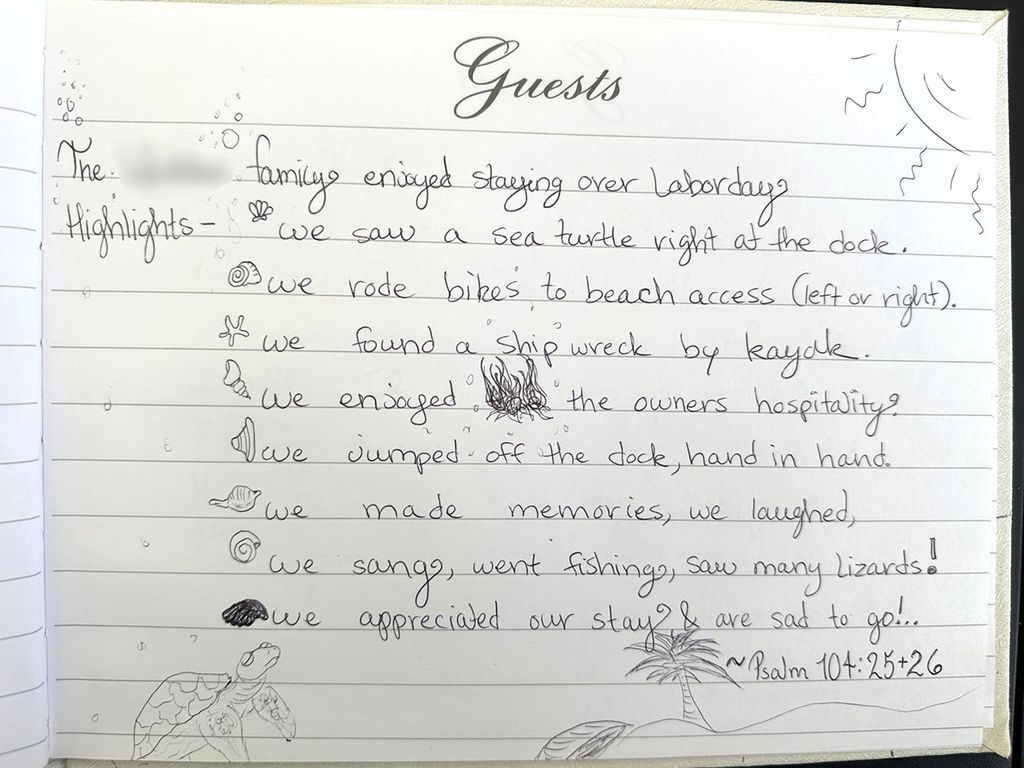 Guests
The family enjoyed staying over Laborday
Highlights - we saw a sea turtle right at the dock.
we rode bikes to beach access (left or right).
we found a ship wreck by kayak.
we enjoyed the owners hospitality
we jumped off the dock, hand in hand.
we made memories, we laughed,
we sang, went fishing, saw many lizards!
we appreciated our stay & are sad to go!..
~Psalm 104:25+26